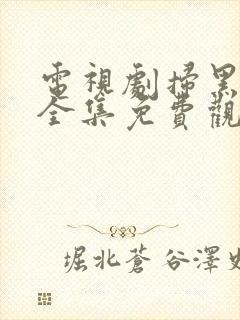 電視劇掃黑
全集免費觀
堀北蒼谷澤